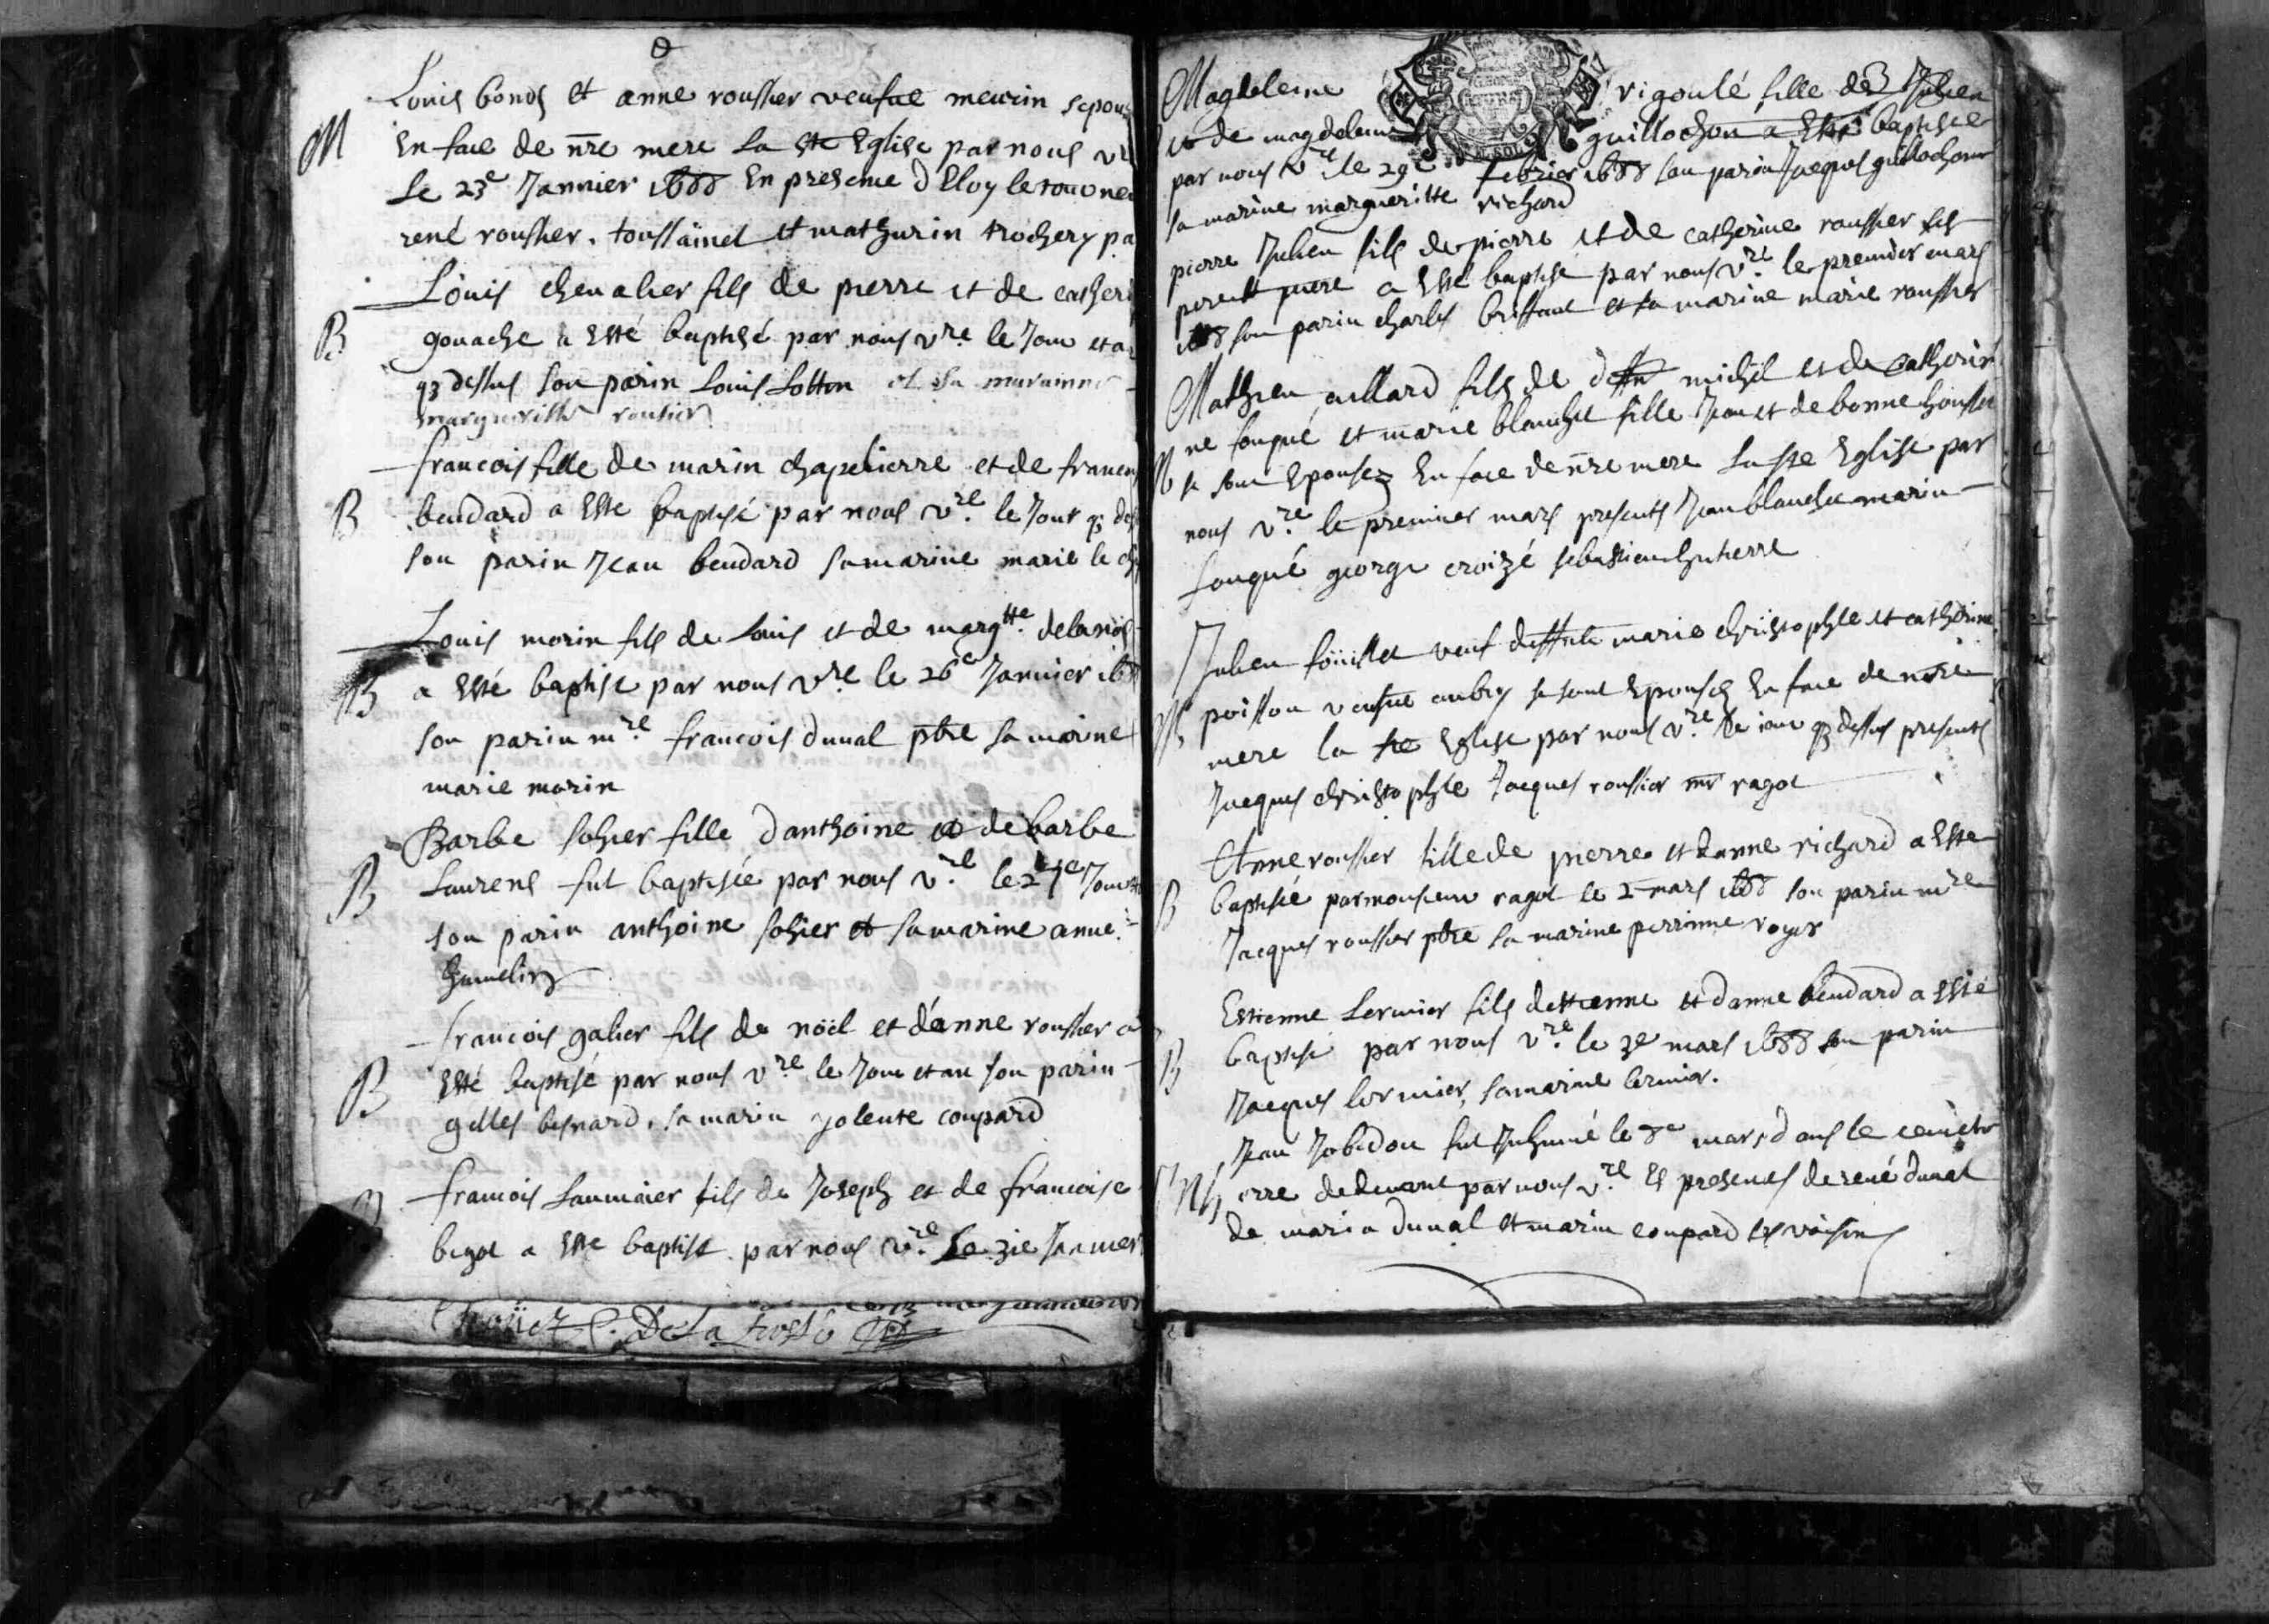 Louis bonds et anne roussier veufue meurin sepous
En face de nre mere La ste Eglise par nous vre
Le 23e Jannier 1688 En presence d'Eloy le tourne
rené roussier. toussainct et mathurin trochery pa
M
Louis cheualier fils de pierre et de catheri
gouache a Esté baptisé par nous vre le Jour et a
B
q3 dessus son parin Louis Lotton et sa marainne
margueritte roussier
francois fille de marin chapelierre et de francoi
B
beudard a Esté baptisé par nous vre le Jour q3 des
son parin Jean beudard sa marine marie le ch
Louis morin fils de Louis et de margtte delanoë
a Esté baptise par nous vre le 26e Jannier 168
B
son parin mre francois duual ptre sa marine
marie morin
Barbe sohier fille danthoine et de barbe
Laurens fut baptisée par nous vre le 27e Jour
B
son parin anthoine sohier et sa marine anne
hamelin
francois galier fils de noël et d'anne roussier a
Esté baptisé par nous vre le Jour et an son parin
B
gilles besnard. sa marin yolente coupard
francois Laumaier fils de Joseph et de francoise
B
bigot a Esté baptise par nous vre Le 31e Jannier
De La
Magdeleine rigoulé fille de Julien
et de magdeleine guillochon a Esté baptisée
par nous vre le 29e febrier 1688 son parin Jacques guillochon
sa marine margueritte richard
pierre Julien fils de pierre et de catherine roussier ses
pere et mere a Esté baptisé par nous vre le premier mars
1688 son parin charles brissant et sa marine marie roussier
Mathieu aillard fils de deffn michel et de catheri
ne fouqué et marie blanche fille Jean et de bonne housse
M
se sont Epousez En face de nre mere La ste Eglise par
nous vre le premier mars presents Jean blanche marin
fouqué george croizé sebastien huherre
Julien foüillet veuf deffute marie christophle et catherine
poisson veufue aubry se sont Epousés En face de nostre
M
mere la ste Eglise par nous vre le iour q3 dessus presents
Jacques christophle Jacques roussier mr ragot
Anne roussier fille de pierre et danne richard a Esté
B
baptisée par monsieur ragot le 2 mars 1688 son parin mre
Jacques roussier ptre sa marine perrinne royer
Estienne Lermier fils destienne et danne beudard a Esté
B
baptisé par nous vre le 3e mars 1688 son parin
Jacques lermier, sa marine lermier.
Jean Jobidon fut Inhumé le 8e mars dans le cemet
Inh
erre dedeuant par nous vre Es presences de rené duual
de marin duual et marin coupard ses voisins